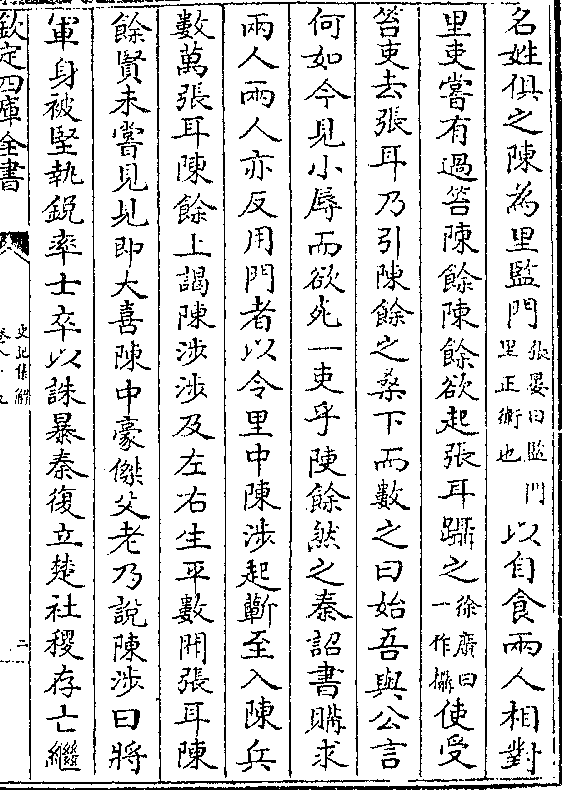 名姓俱之陳為里監門張晏曰監門里正衛也以自食兩人相對
里吏嘗有過笞陳餘陳餘欲起張耳躡之徐廣曰一作攝使受
笞吏去張耳乃引陳餘之桑下而數之曰始吾與公言
何如今見小辱而欲死一吏乎陳餘然之秦詔書購求
兩人兩人亦反用門者以令里中陳涉起蘄至入陳兵
數萬張耳陳餘上謁陳涉涉及左右生平數聞張耳陳
餘賢未嘗見見即大喜陳中豪傑父老乃說陳涉曰將
軍身被堅執銳率士卒以誅暴秦復立楚社稷存亡繼
欽定四庫全書
史記集解
卷八十九
二